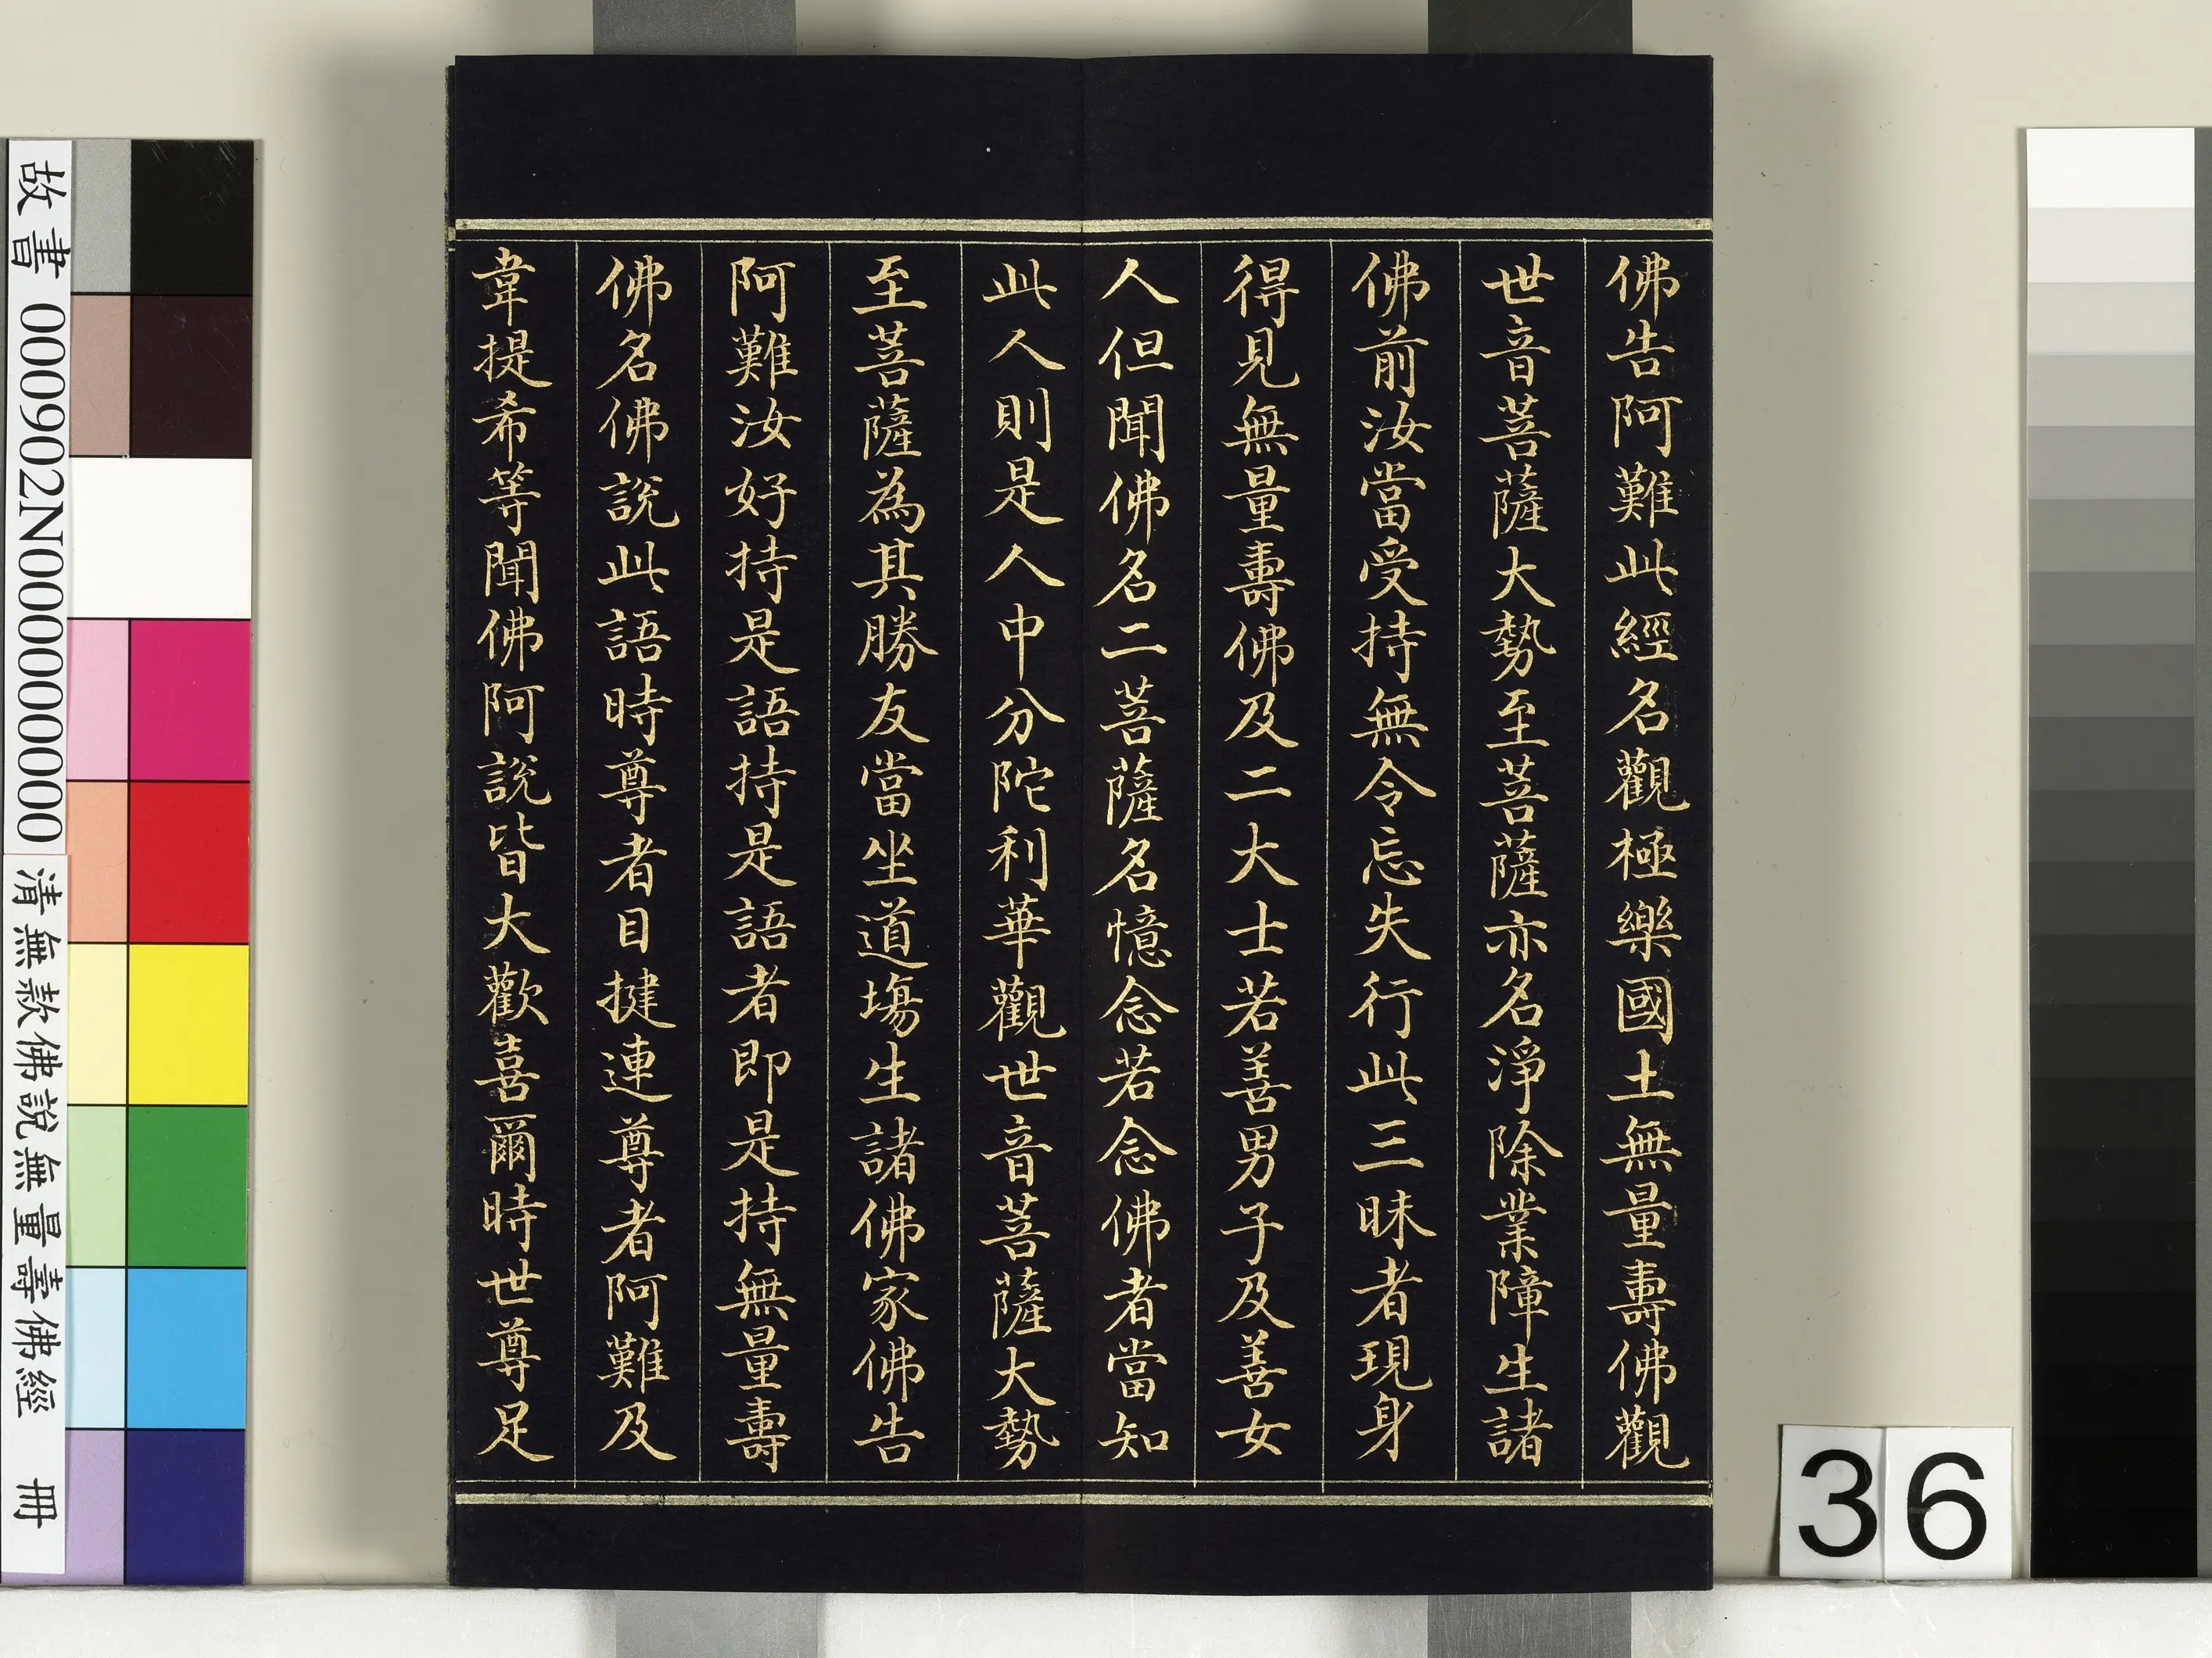 佛告阿難此經名觀極樂國土無量壽佛觀
世音菩薩大勢至菩薩亦名淨除業障生諸
佛前汝當受持無令忘失行此三昧者現身
得見無量壽佛及二大士若善男子及善女
人但聞佛名二菩薩名憶念若念佛者當知
此人則是人中分陀利華觀世音菩薩大勢
至菩薩為其勝友當坐道塲生諸佛家佛告
阿難汝好持是語持是語者即是持無量壽
佛名佛說此語時尊者目揵連尊者阿難及
韋提希等聞佛阿說皆大歡喜爾時世尊足
故書 000902N000000000
清無款佛說無量壽佛經 冊
36